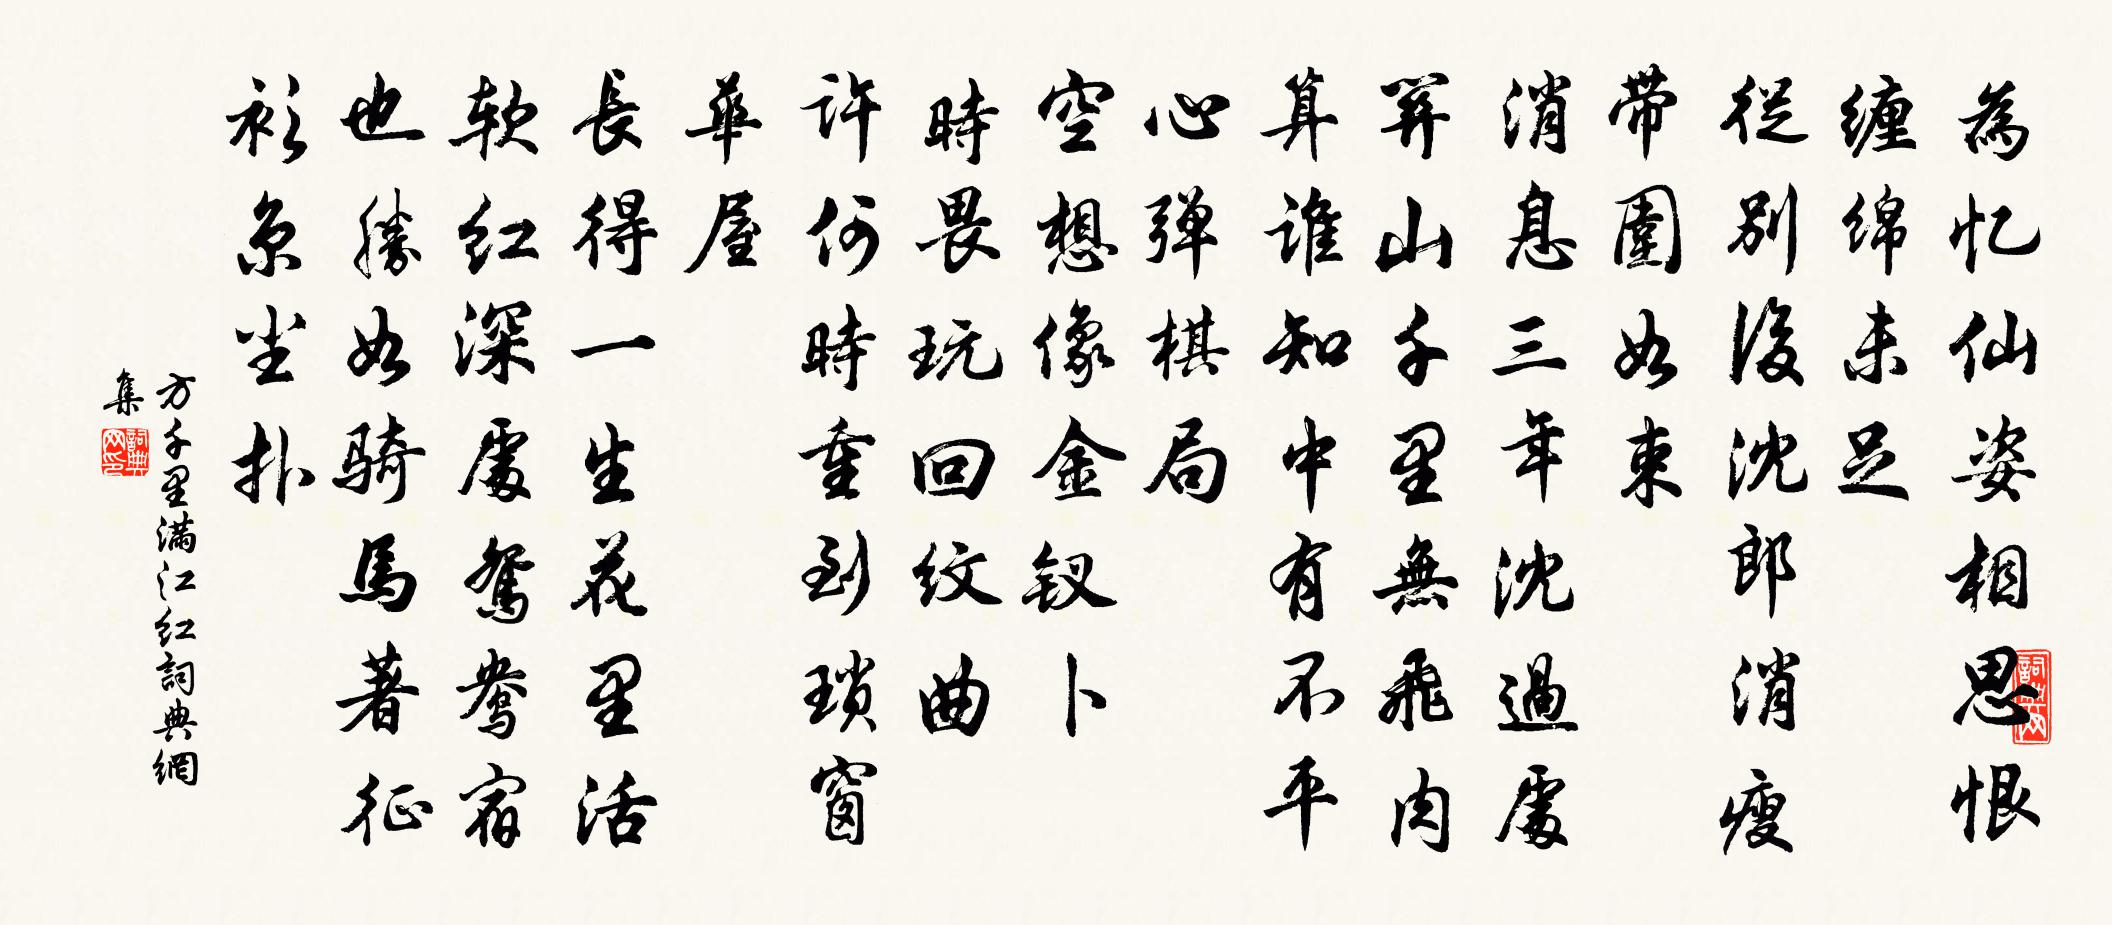 為忆仙姿相思恨
缠绵未足
從别後沈郎消瘦
带圍如束
消息三年沈過處
關山千里無飛肉
算谁知中有不平
心弹棋局
空想像金钗卜
時畏玩回纹曲
许何時重到琐窗
華屋
長得一生花里活
软红深處鸳鸯宿
也勝如骑馬著征
衫京尘扑
方千里满江红詞典網
集
詞典网印